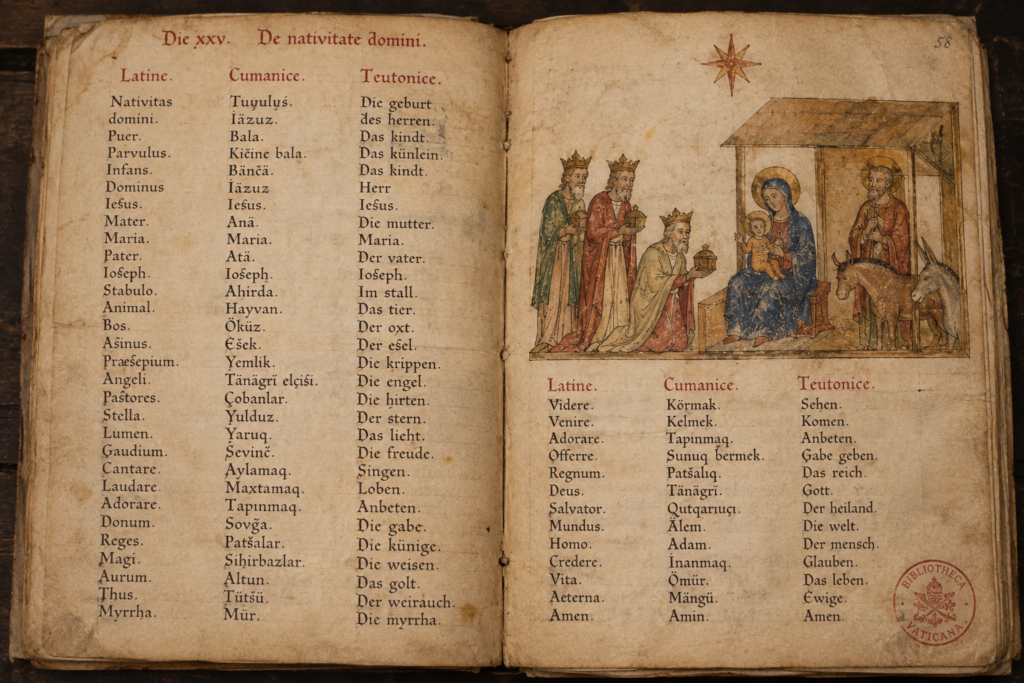 Die xxv. De nativitate domini.
Latine. Cumanice. Teutonice.
Nativitas Tuyulyṡ. Die geburt
domini. İäzuz. des herren.
Puer. Bala. Das kindt.
Parvulus. Kičine bala. Das künlein.
Infans. Bänčä. Das kindt.
Dominus İäzuz Herr
Ieſus. Ieſus. Ieſus.
Mater. Anä. Die mutter.
Maria. Maria. Maria.
Pater. Atä. Der vater.
Ioſeph. Ioſeph. Ioſeph.
Stabulo. Ahirda. Im stall.
Animal. Hayvan. Das tier.
Bos. Öküz. Der oxt.
Aſinus. Ešek. Der eſel.
Praeſepium. Yemlik. Die krippen.
Angeli. Tänägrï elçiſi. Die engel.
Paſtores. Çobanlar. Die hirten.
Stella. Yulduz. Der stern.
Lumen. Yaruq. Das licht.
Gaudium. Sevinč. Die freude.
Cantare. Aylamaq. Singen.
Laudare. Maxtamaq. Loben.
Adorare. Tapınmaq. Anbeten.
Donum. Sovğa. Die gabe.
Reges. Patšalar. Die künige.
Magi. Sihirbazlar. Die weisen.
Aurum. Altun. Das golt.
Thus. Tütsü. Der weirauch.
Myrrha. Mür. Die myrrha.
58
Latine. Cumanice. Teutonice.
Videre. Körmak. Sehen.
Venire. Kelmek. Komen.
Adorare. Tapınmaq. Anbeten.
Offerre. Sunuq bermek. Gabe geben.
Regnum. Patšalıq. Das reich.
Deus. Tänägrï. Gott.
Salvator. Qutqarıuçı. Der heiland.
Mundus. Älem. Die welt.
Homo. Adam. Der mensch.
Credere. Inanmaq. Glauben.
Vita. Ömür. Das leben.
Aeterna. Mängü. Ewige.
Amen. Amin. Amen.
BIBLIOTHECA
VATICANA